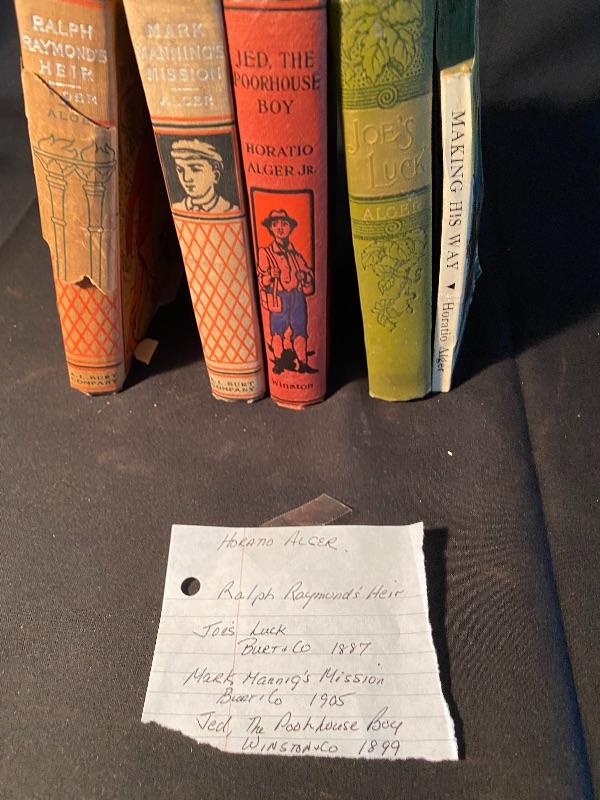 RALPH
RAYMOND'S
HEIR
ALGER
A.L. BURT
COMPANY
MARK
MANNING'S
MISSION
ALGER
A.L. BURT
COMPANY
JED, THE
POORHOUSE
BOY
HORATIO
ALGER JR.
Winston
JOE'S
LUCK
ALGER
MAKING HIS WAY ▼ Horatio Alger
HORATIO ALGER.
Ralph Raymond's Heir
Joe's Luck
BURT & CO 1887
Mark Mannig's Mission
Burt & Co 1905
Jed, The Poohhouse Boy
WINSTON & CO 1899